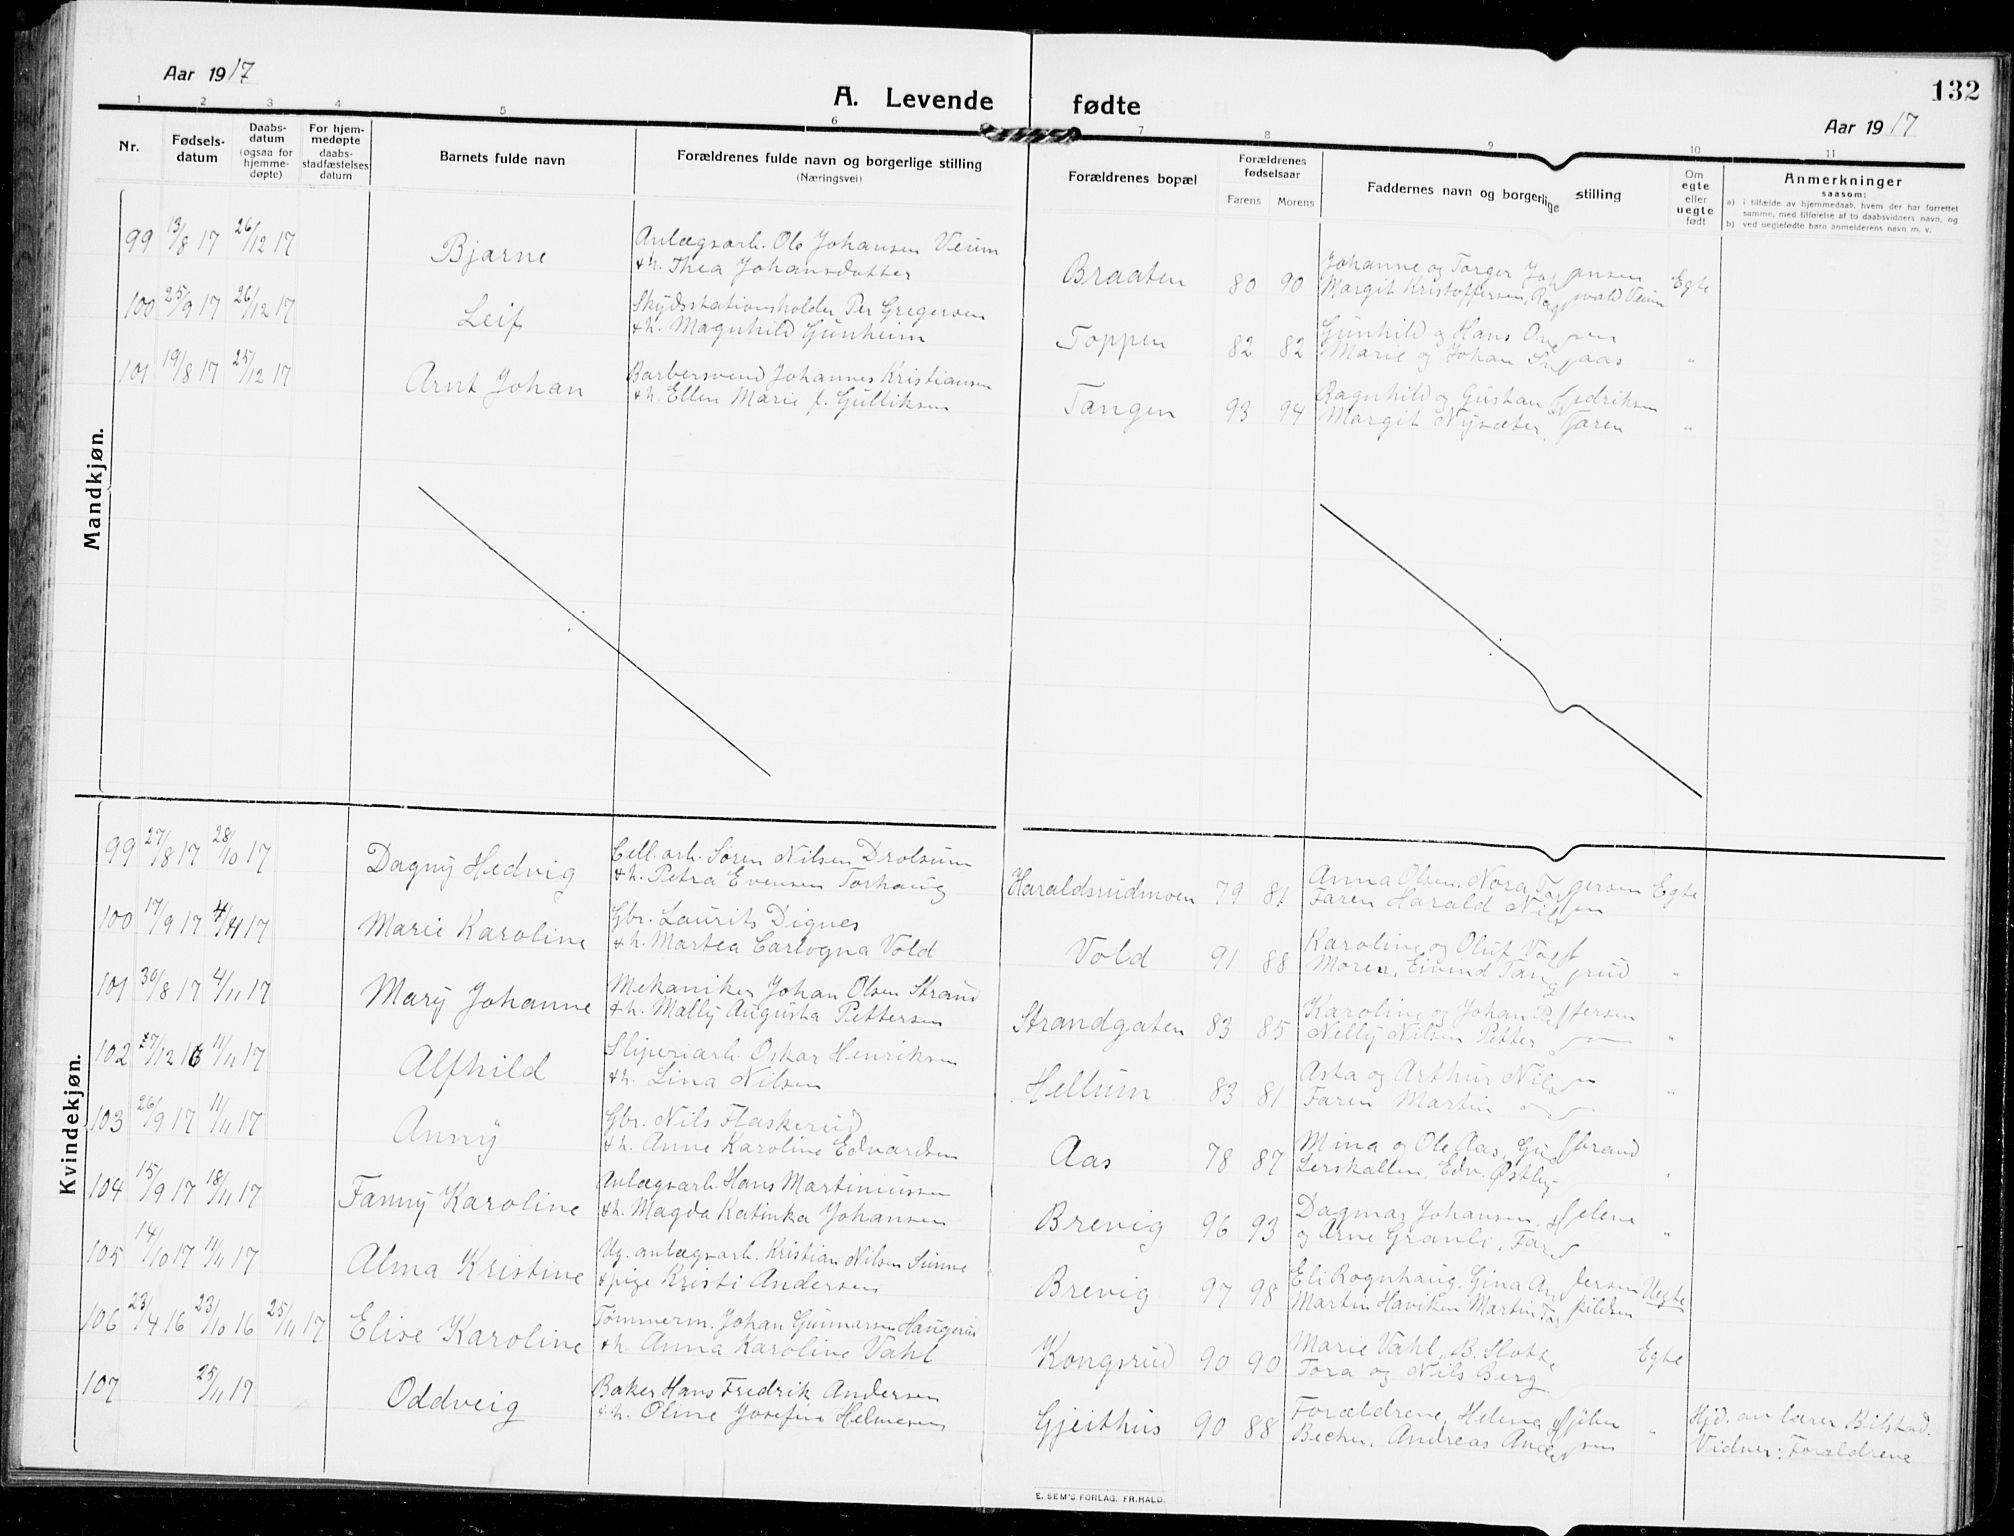 Aar 1917
A. Levende fødte
132
Aar 1917
1 2 3 4 5 6 7 8 9 10 11
Nr.
Fødsels-
datum
Daabs-
datum
(ogsaa for
hjemme-
døpte)
For hjem-
medøpte
daabs-
stadfæstelses
datum
Barnets fulde navn
Forældrenes fulde navn og borgerlige stilling
(Næringsvei)
Forældrenes bopæl
Forældrenes
fødselsaar
Farens Morens
Faddernes navn og borgerlige stilling
Om
egte
eller
uegte
født
Anmerkninger
saasom:
a) i tilfælde av hjemmedaab, hvem der har forrettet
samme, med tilføielse af to daabsvidners navn, og
b) ved uegtefødte barn anmelderens navn m. v.
Mandkjøn.
99 13/8 17 26/12 17 Bjarne
Anlægsarb. Ole Johansen Veum
& h. Thea Johansdatter
Braaten 80 90
Johanne og Torger Johansen
Margit Kristoffersen, Ragnvald Veum
Egte
100 25/9 17 26/12 17 Leif
Skydsstationsholder Per Gregersen
& h. Magnhild Gunheim
Toppen 82 82
Gunhild og Hans
Marie og Johan
"
101 19/8 17 25/12 17 Arnt Johan
Barbersvend Johannes Kristiansen
& h. Ellen Marie f. Gulliksen
Tangen 93 94
Ragnhild og Gustav Fredriksen
Margit Nysæter, Faren
"
Kvindekjøn.
99 27/8 17 28/10 17 Dagny Hedvig
Cell. arb. Søren Nilsen Drolsum
& h. Petra Evensen Torhaug
Haraldsrudmoen 79 81
Anna Olsen, Nora Torgersen
Faren Harald Nilsen
Egte
100 17/9 17 4/11 17 Marie Karoline
Gbr. Laurits Dignes
& h. Martea Carlogna Vold
Vold 91 88
Karoline og Oluf Vold
Moren, Eivind
"
101 30/8 17 4/11 17 Mary Johanne
Mekaniker Johan Olsen Strand
& h. Mally Augusta Pettersen
Strandgaten 83 85
Karoline og Johan Pettersen
Nelly Nilsen Petter
"
102 27/12 16 11/11 17 Alfhild
Sliperiarb. Oskar Henriksen
& h. Lina Nilsen
Hellum 83 81
Asta og Arthur Nilsen
Faren Martin
"
103 26/9 17 11/11 17 Anny
Gbr. Nils Flaskerud
& h. Anne Karoline Edvardsen
Aas 78 87
Mina og Ole Aas, Gudbrand
Lerskallen, Edv. Østby
"
104 15/9 17 18/11 17 Fanny Karoline
Anlægsarb. Hans Martinussen
& h. Magda Katinka Johansen
Brevig 96 93
Dagmar Johansen, Helene
og Arne Granli, Faren
"
105 14/10 17 11/11 17 Alma Kristine
Ug. anlægsarb. Kristian Nilsen Sunne
& pige Kristi Andersen
Brevig 97 98
Eli Rognhaug, Gina Andersen
Martin Haviken Martin Torkildsen
Uegte
106 23/4 16 23/10 16 25/11 17 Elise Karoline
Tømmerm. Johan Gunnarsen Haugerud
& h. Anna Karoline Vahl
Kongsrud 90 90
Marie Vahl, B. Slotte
Tora og Nils Berg
Egte
107 25/11 17 Oddveig
Baker Hans Fredrik Andersen
& h. Oline Josefine Helmersen
Gjeithus 90 88
Forældrene, Helena
Becher, Andreas Andersen
"
Hjd. av lærer Bilstad.
Vidner: Forældrene
E. SEM'S FORLAG. FR.HALD.